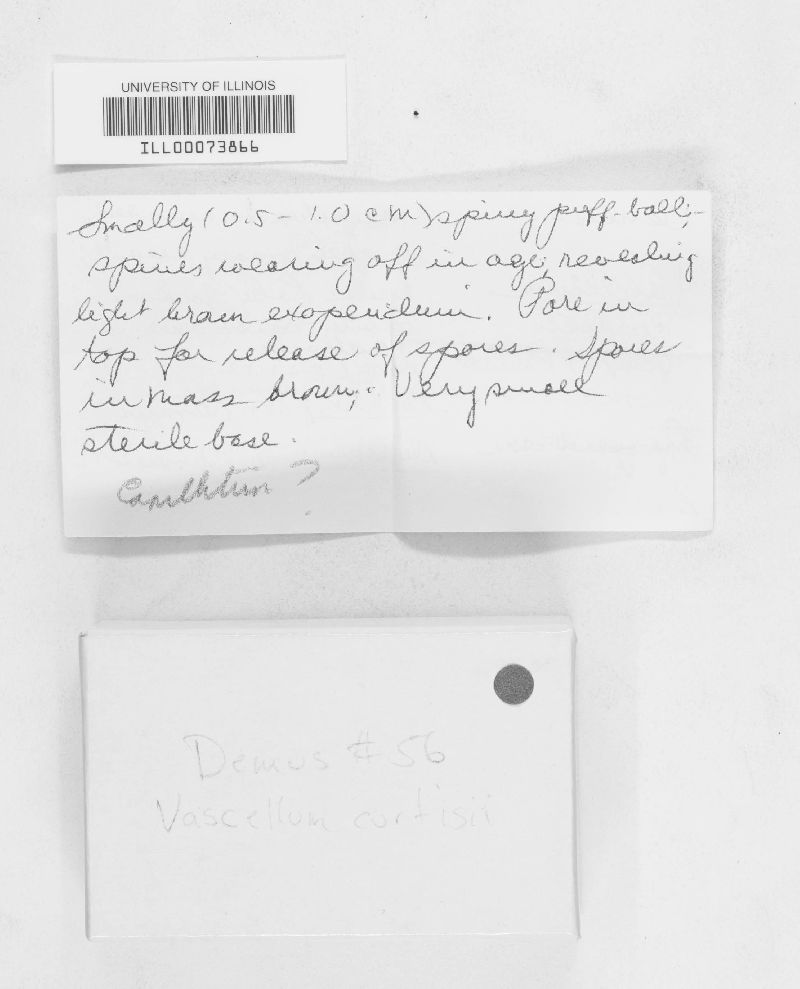 UNIVERSITY OF ILLINOIS
ILL00073866
Smally (0.5 - 1.0 cm) spiny puff-ball;-
spines wearing off in age, revealing
light brown exoperidium. Pore in
top for release of spores. Spores
in mass brown;. Very small
sterile base.
?
Demus # 56
Vascellum curtisii